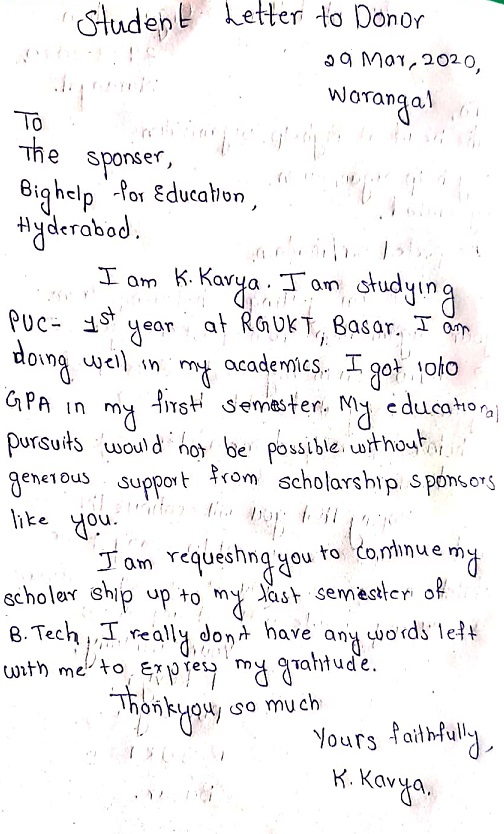 Student Letter to Donor
29 Mar, 2020,
Warangal
To
The sponser,
Bighelp for Education,
Hyderabad.
I am K. Kavya. I am studying
PUC- 1st year at RGUKT, Basar. I am
doing well in my academics. I got 10/10
GPA in my first semester. My educational
pursuits would not be possible without
generous support from scholarship sponsors
like you.
I am requesting you to continue my
scholar ship up to my last semester of
B.Tech, I really don't have any words left
with me to express my gratitude.
Thankyou, so much
Yours faithfully,
K. Kavya.